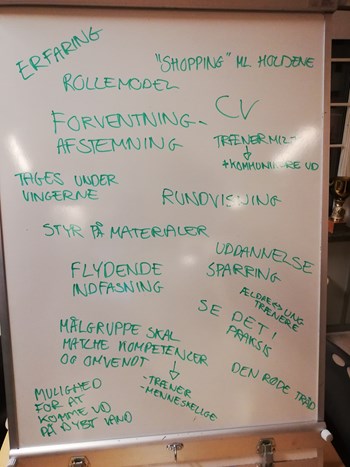 ERFARING
"SHOPPING" ML HOLDENE
ROLLEMODEL
CV
FORVENTNING-
AFSTEMNING
TRÆNERMILJØ
+KOMMUNIKERE UD
TAGES UNDER
VINGERNE
RUNDVISNING
STYR PÅ MATERIALER
UDDANNELSE
SPARRING
FLYDENDE
INDFASNING
ÆLDRE OG UNG
TRÆNERE
SE DET I
PRAKSIS
MÅLGRUPPE SKAL
MATCHE KOMPETENCER
OG OMVENDT
-TRÆNER
-MENNESKELIGE
DEN RØDE TRÅD
MULIGHED
FOR AT
KOMME UD
PÅ DYBT VAND